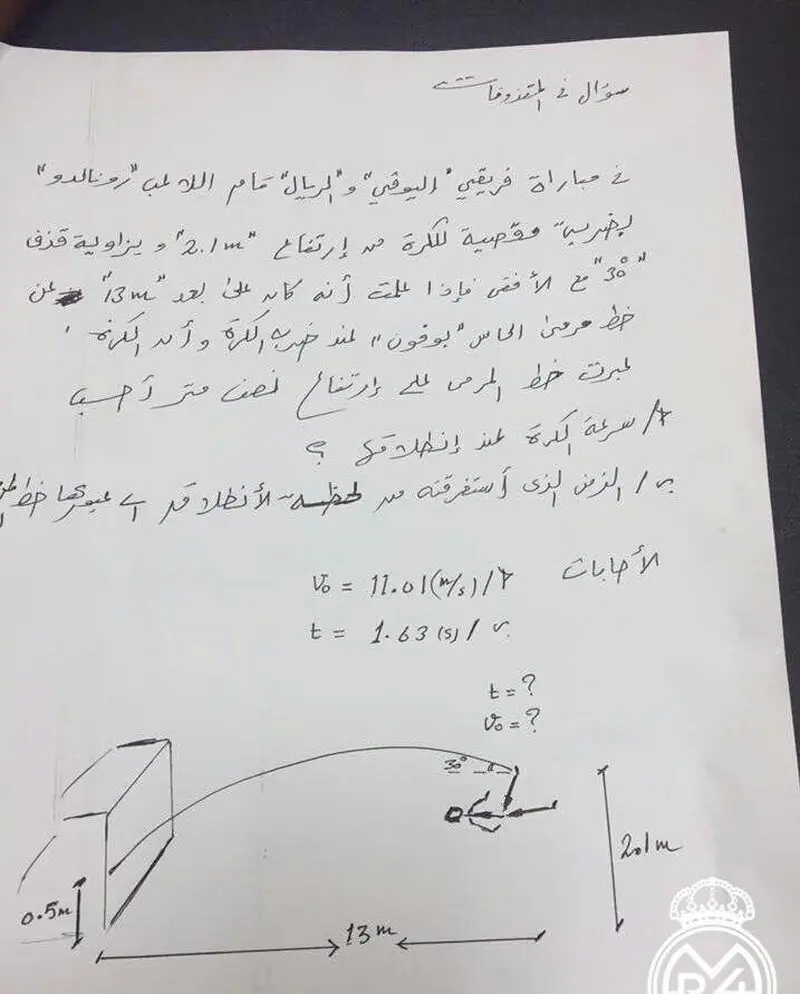 سؤال في المقذوفات
في مباراة فريقي "اليوفي" و"الريال" قام اللاعب "رونالدو"
بضربة مقصية للكرة من إرتفاع "2.1m" وبزاوية قذف
"30°" مع الأفق فإذا علمت أنه كان على بعد "13m" عن
خط مرمى الحارس "بوفون" عند ضربه الكرة وأن الكرة
عبرت خط المرمى على إرتفاع نصف متر أحسب
١/ سرعة الكرة عند إنطلاقها ؟
ب/ الزمن الذي أستغرقته من لحظة الأنطلاق الى عبورها خط
الأجابات
V₀ = 11.01 (m/s) /١
t = 1.63 (s) / ب
t = ?
V₀ = ?
30°
2.1m
0.5m
13m